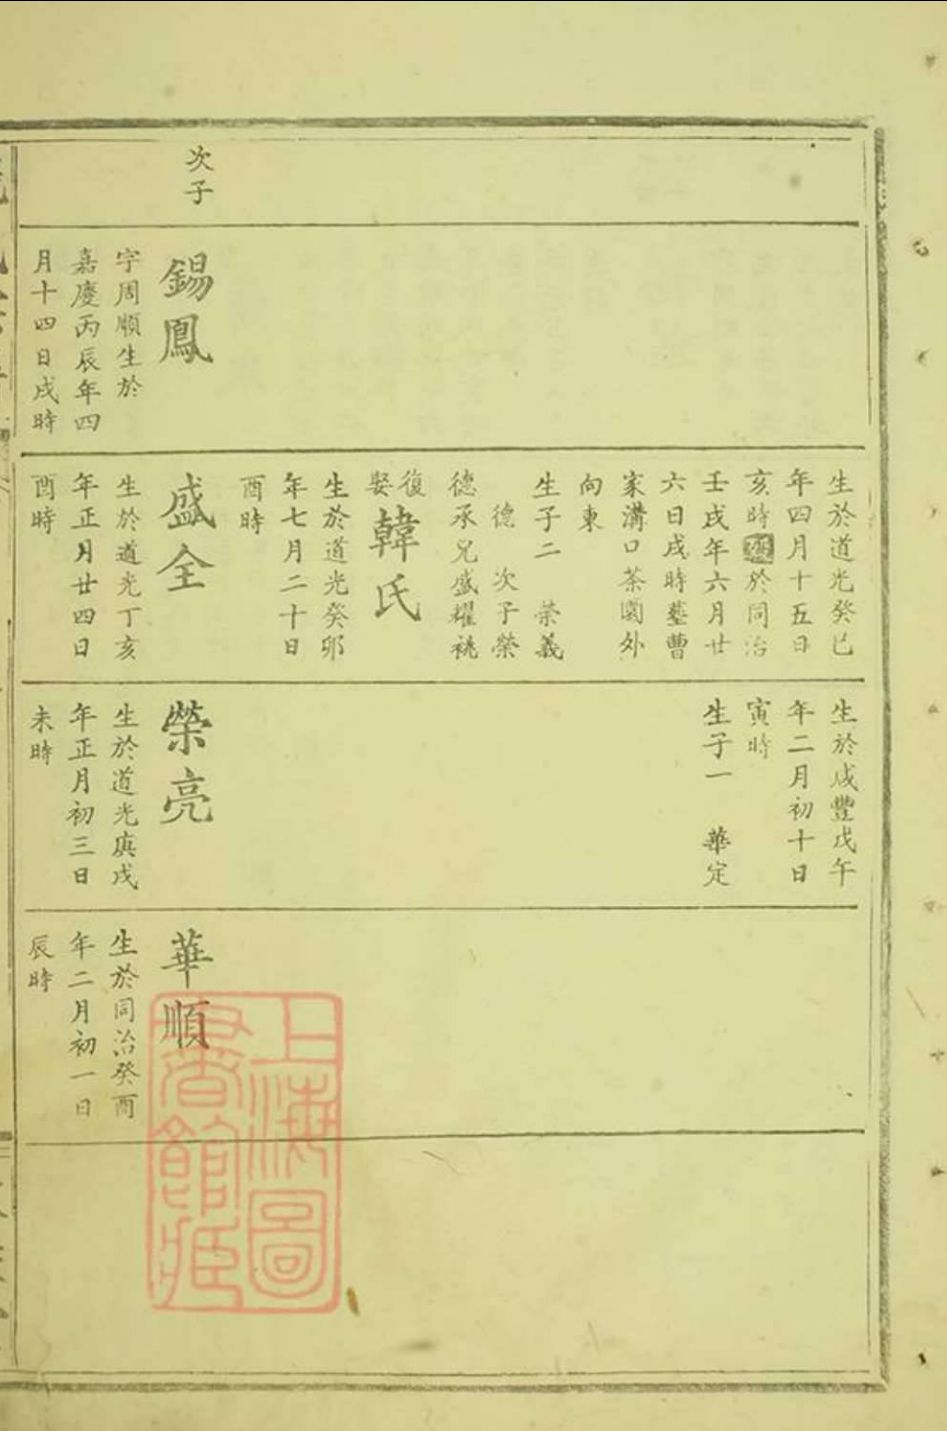 次子
錫鳳
字周順生於
嘉慶丙辰年四
月十四日戌時
生於道光癸巳
年四月十五日
亥時歿於同治
壬戌年六月廿
六日戌時塟曹
家溝口茶園外
向東
生子二 榮義
德 次子榮
德承兄盛耀祧
復娶韓氏
生於道光癸卯
年七月二十日
酉時
盛全
生於道光丁亥
年正月廿四日
酉時
生於咸豐戊午
年二月初十日
寅時
生子一 華定
榮亮
生於道光庚戌
年正月初三日
未時
華順
生於同治癸酉
年二月初一日
辰時
上海圖
書館藏